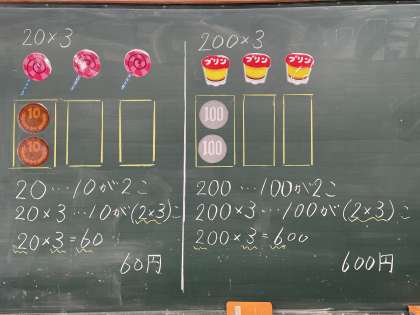 20×3
10
10
20…10が2こ
20×3…10が(2×3)こ
20×3=60
60円
200×3
プリン プリン プリン
100
100
200…100が2こ
200×3…100が(2×3)こ
200×3=600
600円